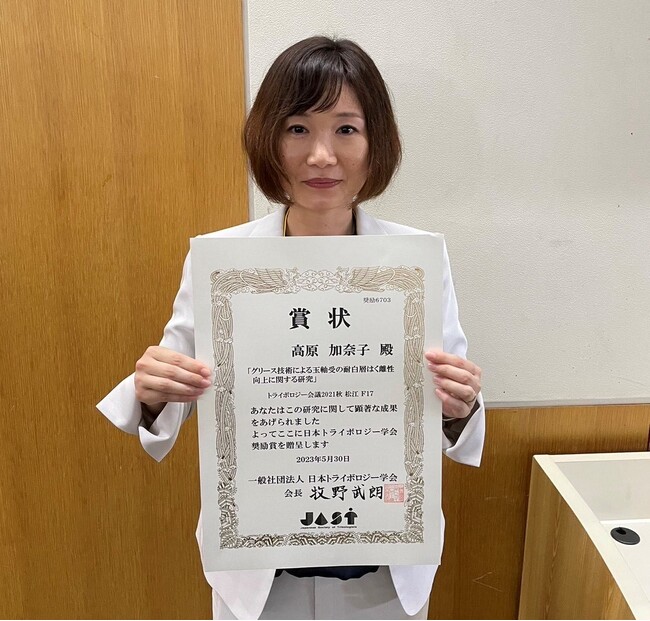 奨励6703
賞状
高原 加奈子 殿
「グリース技術による玉軸受の耐白層はく離性
向上に関する研究」
トライボロジー会議2021秋 松江 F17
あなたはこの研究に関して顕著な成果
をあげられました
よってここに日本トライボロジー学会
奨励賞を贈呈します
2023年5月30日
一般社団法人 日本トライボロジー学会
会長 牧野武朗
JAST
Japanese Society of Tribologists